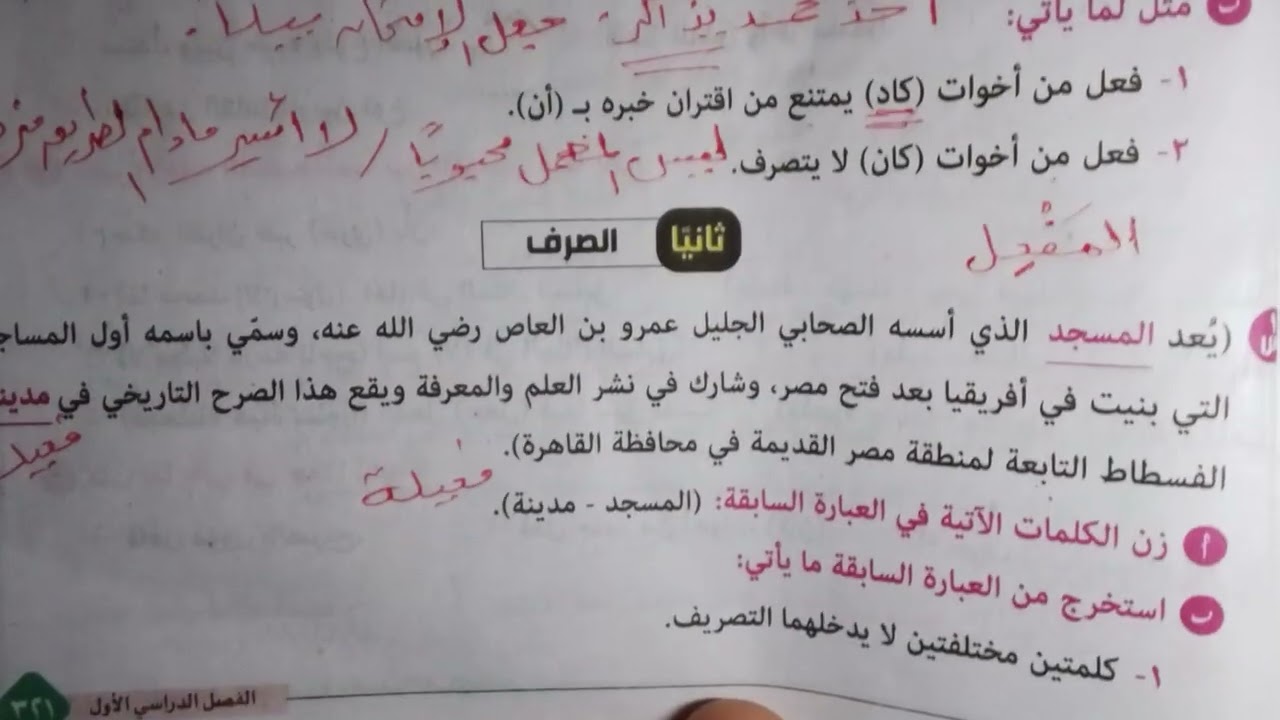 ب مثل لما يأتي: أخذ محمد يذاكر - جعل الامتحان
١- فعل من أخوات (كاد) يمتنع من اقتران خبره بـ (أن).
٢- فعل من أخوات (كان) لا يتصرف. ليس المهمل محبوبًا / لا أسير مادام الطريق
ثانيًا الصرف
المَفْعِل
(يُعد المسجد الذي أسسه الصحابي الجليل عمرو بن العاص رضي الله عنه، وسمّي باسمه أول المساج
التي بنيت في أفريقيا بعد فتح مصر، وشارك في نشر العلم والمعرفة ويقع هذا الصرح التاريخي في مدين
الفسطاط التابعة لمنطقة مصر القديمة في محافظة القاهرة).
فعيلة
أ زن الكلمات الآتية في العبارة السابقة: (المسجد - مدينة).
ب استخرج من العبارة السابقة ما يأتي:
١- كلمتين مختلفتين لا يدخلهما التصريف.
الفصل الدراسي الأول ٣٢١